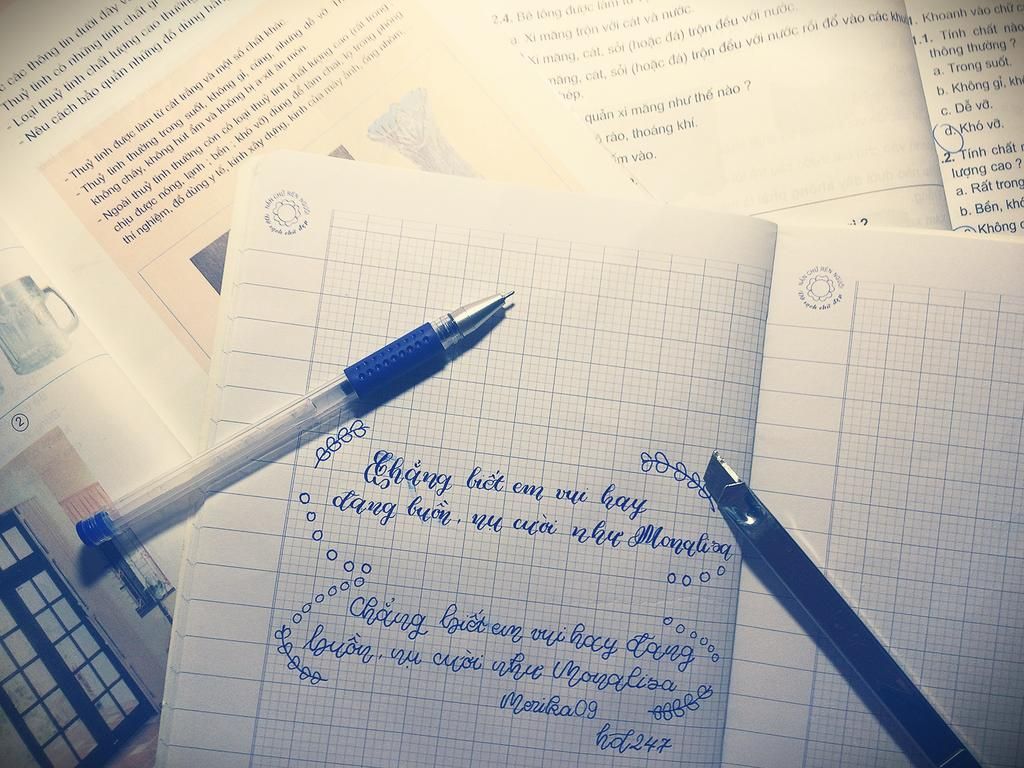 các thông tin dưới đây và
Thuỷ tinh có những tính chất gì
- Loại thuỷ tinh chất lượng cao thường
- Nêu cách bảo quản những đồ dùng bằn
- Thuỷ tinh được làm từ cát trắng và một số chất khác.
- Thuỷ tinh thường trong suốt, không gỉ, cứng, nhưng dễ vỡ.
không cháy, không hút ẩm và không bị a xít ăn mòn.
- Ngoài thuỷ tinh thường còn có loại thuỷ tinh chất lượng cao rất trong ;
chịu được nóng, lạnh ; bền ; khó vỡ dùng để làm chai, lọ trong phòng
thí nghiệm, đồ dùng y tế, kính xây dựng, kính của máy ảnh, ống nhòm,
2
2.4. Bê tông được làm từ
a. Xi măng trộn với cát và nước.
Xi măng, cát, sỏi (hoặc đá) trộn đều với nước.
măng, cát, sỏi (hoặc đá) trộn đều với nước rồi đổ vào các khu
hép.
quản xi măng như thế nào ?
rào, thoáng khí.
ẩm vào.
1. Khoanh vào chữ c
1.1. Tính chất nào
thông thường ?
a. Trong suốt.
b. Không gỉ, kh
c. Dễ vỡ.
d. Khó vỡ.
.2. Tính chất
lượng cao ?
a. Rất trong
b. Bền, khó
Không c
NẮN CHỮ RÈN NGƯỜI
Vở sạch chữ đẹp
NẮN CHỮ RÈN NGƯỜI
Vở sạch chữ đẹp
Chẳng biết em vui hay
đang buồn, nụ cười như Monalisa
Chẳng biết em vui hay đang
buồn, nụ cười như Monalisa
Morika09
hd247